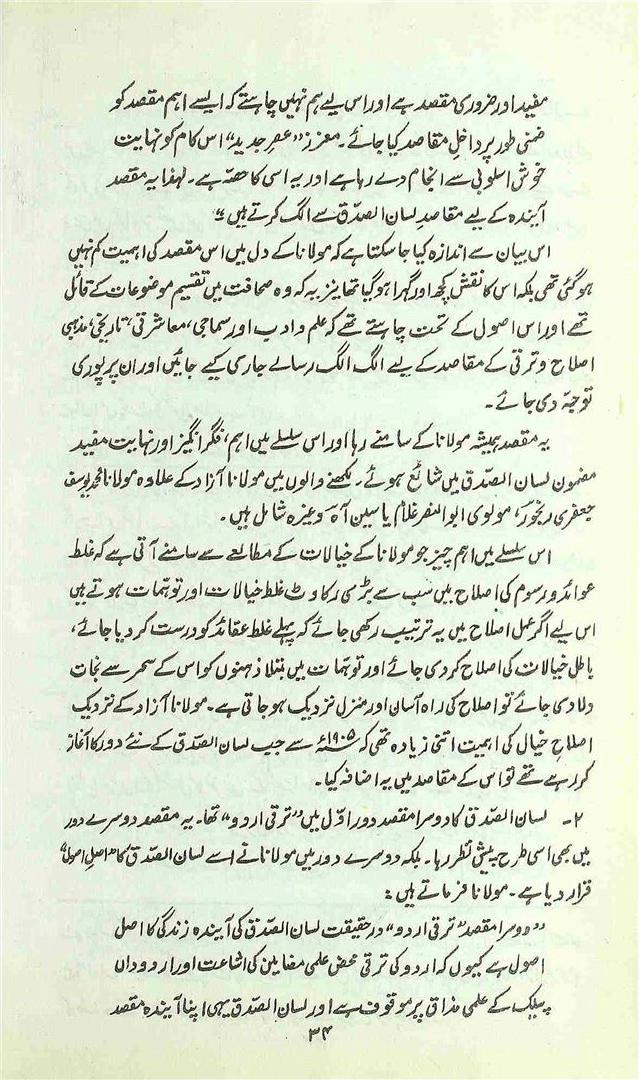 مفید اور ضروری مقصد ہے اور اس لیے ہم نہیں چاہتے کہ ایسے اہم مقصد کو
ضمنی طور پر داخلِ مقاصد کیا جائے۔ معزز "عصرِ جدید" اس کام کو نہایت
خوش اسلوبی سے انجام دے رہا ہے اور یہ اسی کا حصّہ ہے۔ لہٰذا یہ مقصد
آیندہ کے لیے مقاصدِ لسان الصّدق سے الگ کرتے ہیں"
اس بیان سے اندازہ کیا جا سکتا ہے کہ مولانا کے دل میں اس مقصد کی اہمیت کم نہیں
ہو گئی تھی بلکہ اس کا نقش کچھ اور گہرا ہو گیا تھا نیز یہ کہ وہ صحافت میں تقسیم موضوعات کے قائل
تھے اور اس اصول کے تحت چاہتے تھے کہ علم و ادب اور سماجی، معاشرتی، تاریخی، مذہبی
اصلاح و ترقی کے مقاصد کے لیے الگ الگ رسالے جاری کیے جائیں اور ان پر پوری
توجہّ دی جائے۔
یہ مقصد ہمیشہ مولانا کے سامنے رہا اور اس سلسلے میں اہم، فکر انگیز اور نہایت مفید
مضمون لسان الصّدق میں شائع ہوئے۔ لکھنے والوں میں مولانا آزاد کے علاوہ مولانا محمد یوسف
جعفری رنجور، مولوی ابوالنصر غلام یاسین آہ وغیرہ شامل ہیں۔
اس سلسلے میں اہم چیز جو مولانا کے خیالات کے مطالعے سے سامنے آتی ہے کہ غلط
عوائد و رسوم کی اصلاح میں سب سے بڑی رکاوٹ غلط خیالات اور توہمات ہوتے ہیں
اس لیے اگر عمل اصلاح میں یہ ترتیب رکھی جائے کہ پہلے غلط عقائد کو درست کر دیا جائے،
باطل خیالات کی اصلاح کر دی جائے اور توہمات میں مبتلا ذہنوں کو اس کے سحر سے نجات
دلا دی جائے تو اصلاح کی راہ آسان اور منزل نزدیک ہو جاتی ہے۔ مولانا آزاد کے نزدیک
اصلاحِ خیال کی اہمیت اتنی زیادہ تھی کہ ۱۹۰۵ء سے جب لسان الصّدق کے نئے دور کا آغاز
کر رہے تھے تو اس کے مقاصد میں یہ اضافہ کیا۔
۲۔ لسان الصّدق کا دوسرا مقصد دورِ اوّل میں "ترقی اردو" تھا۔ یہ مقصد دوسرے دور
میں بھی اسی طرح پیشِ نظر رہا۔ بلکہ دوسرے دور میں مولانا نے اسے لسان الصّدق کا "اصلِ اصول"
قرار دیا ہے۔ مولانا فرماتے ہیں:
"دوسرا مقصد" ترقی اردو" درحقیقت لسان الصّدق کی آیندہ زندگی کا اصل
اصول ہے کیوں کہ اردو کی ترقی محض علمی مضامین کی اشاعت اور اردو داں
پبلک کے علمی مذاق پر موقوف ہے اور لسان الصّدق یہی اپنا آیندہ مقصد
۳۴